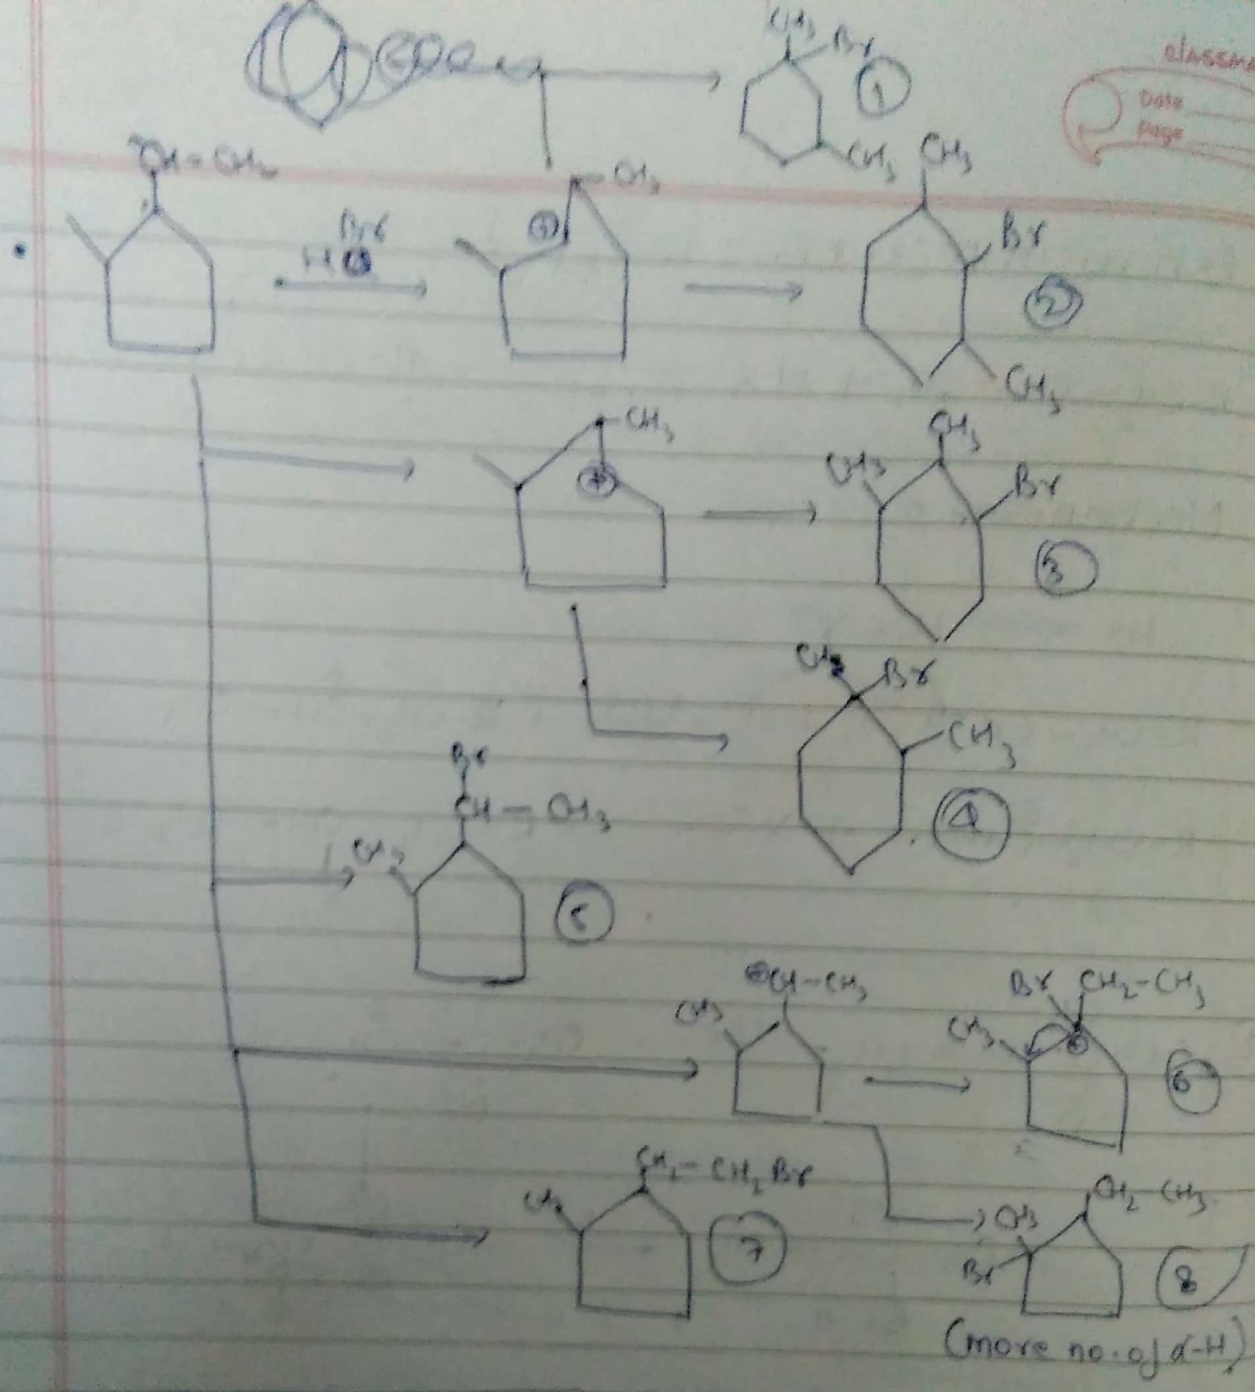 CH3
Br
1
CH3
classma
Date
Page
CH = CH2
CH3
CH3
Br
H
+
Br
2
CH3
CH3
+
CH3
CH3
Br
3
CH3
Br
CH3
4
Br
CH - CH3
CH3
5
⊕CH-CH3
CH3
Br CH2-CH3
CH3
⊕
6
CH2-CH2Br
CH3
7
CH2-CH3
CH3
Br
8
(more no. of α-H)